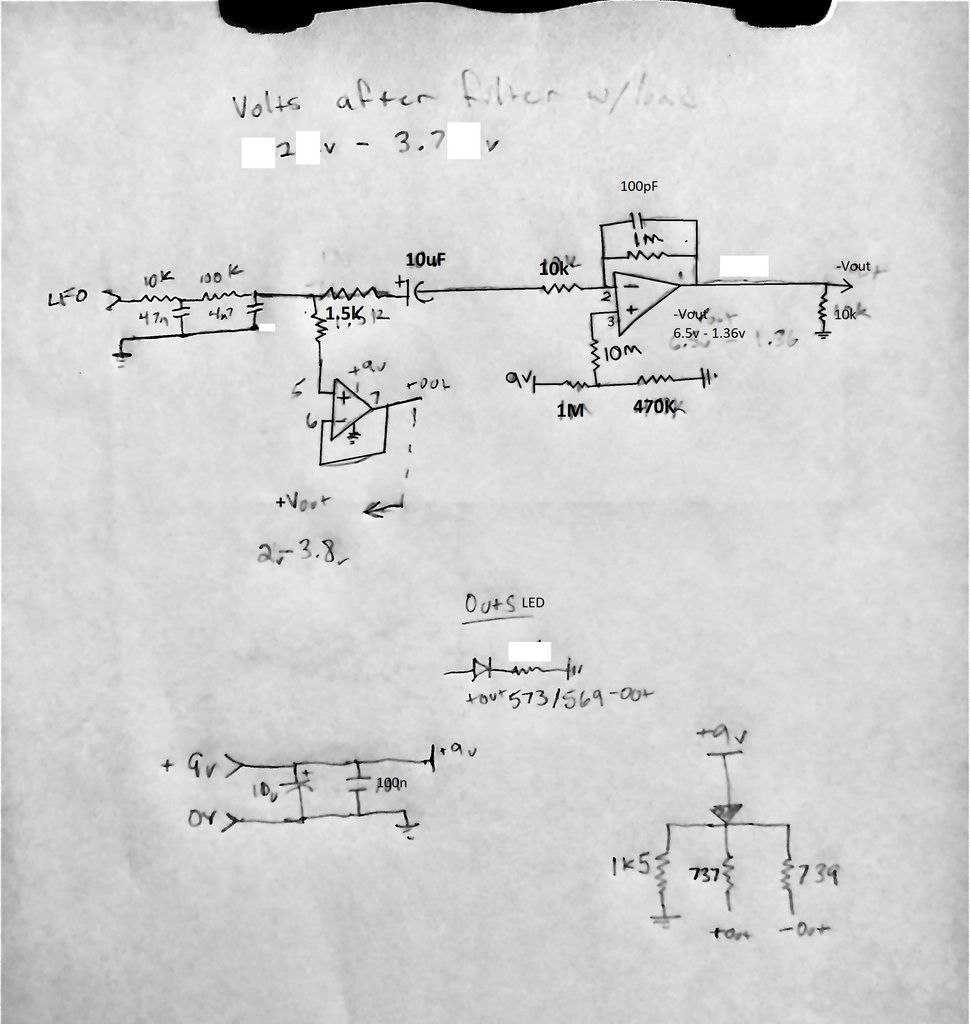 Volts after filter w/load
2 v - 3.7 v
100pF
1M
10K
100K
10uF
10k
LFO
47n
4n7
1.5K
+
2
3
1
-Vout
-Vout
6.5v - 1.36v
10k
10M
9v
1M
470K
+9v
5
6
7
+out
+Vout
2v-3.8v
Outs LED
+out 573/569 -out
+9v
+ 9v
10u
100n
0v
+9v
1K5
737
739
+out
-out